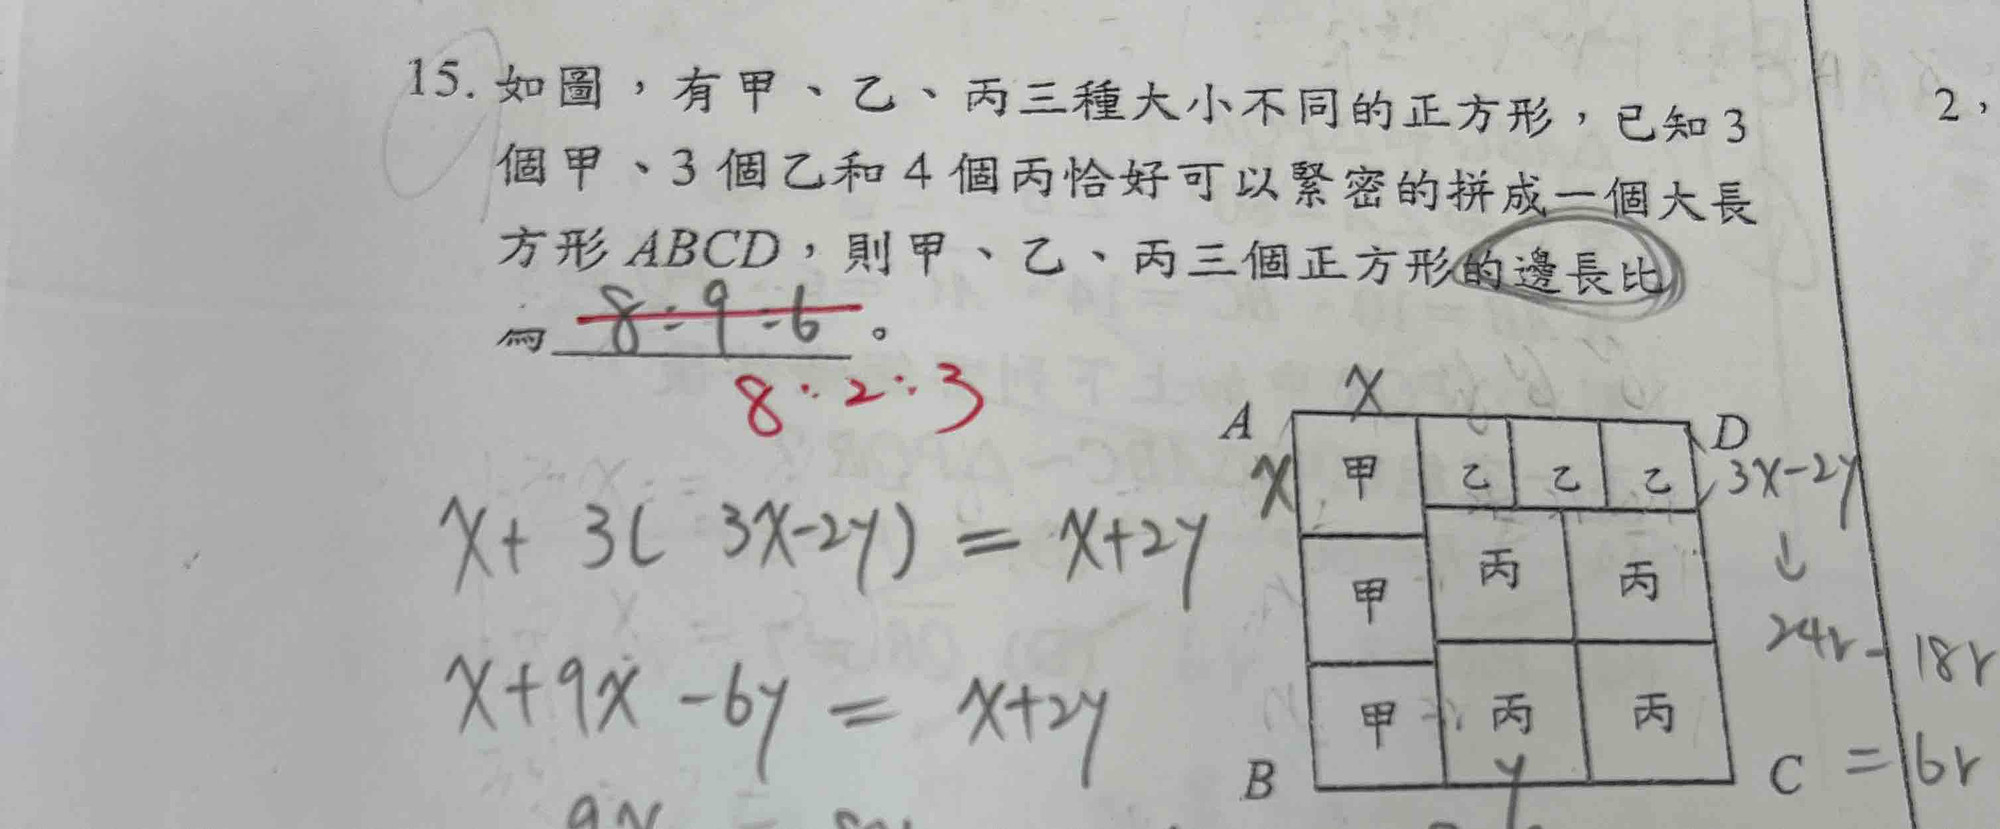 15. 如圖，有甲、乙、丙三種大小不同的正方形，已知3
個甲、3個乙和4個丙恰好可以緊密的拼成一個大長
方形ABCD，則甲、乙、丙三個正方形的邊長比
為 8:9:6 。
8:2:3
x+ 3( 3x-2y) = x+2y
x+9x -6y = x+2y
x
A
D
x
甲
乙
乙
乙
3x-2y
↓
甲
丙
丙
24r-18r
甲
丙
丙
=6r
B
y
C
2，